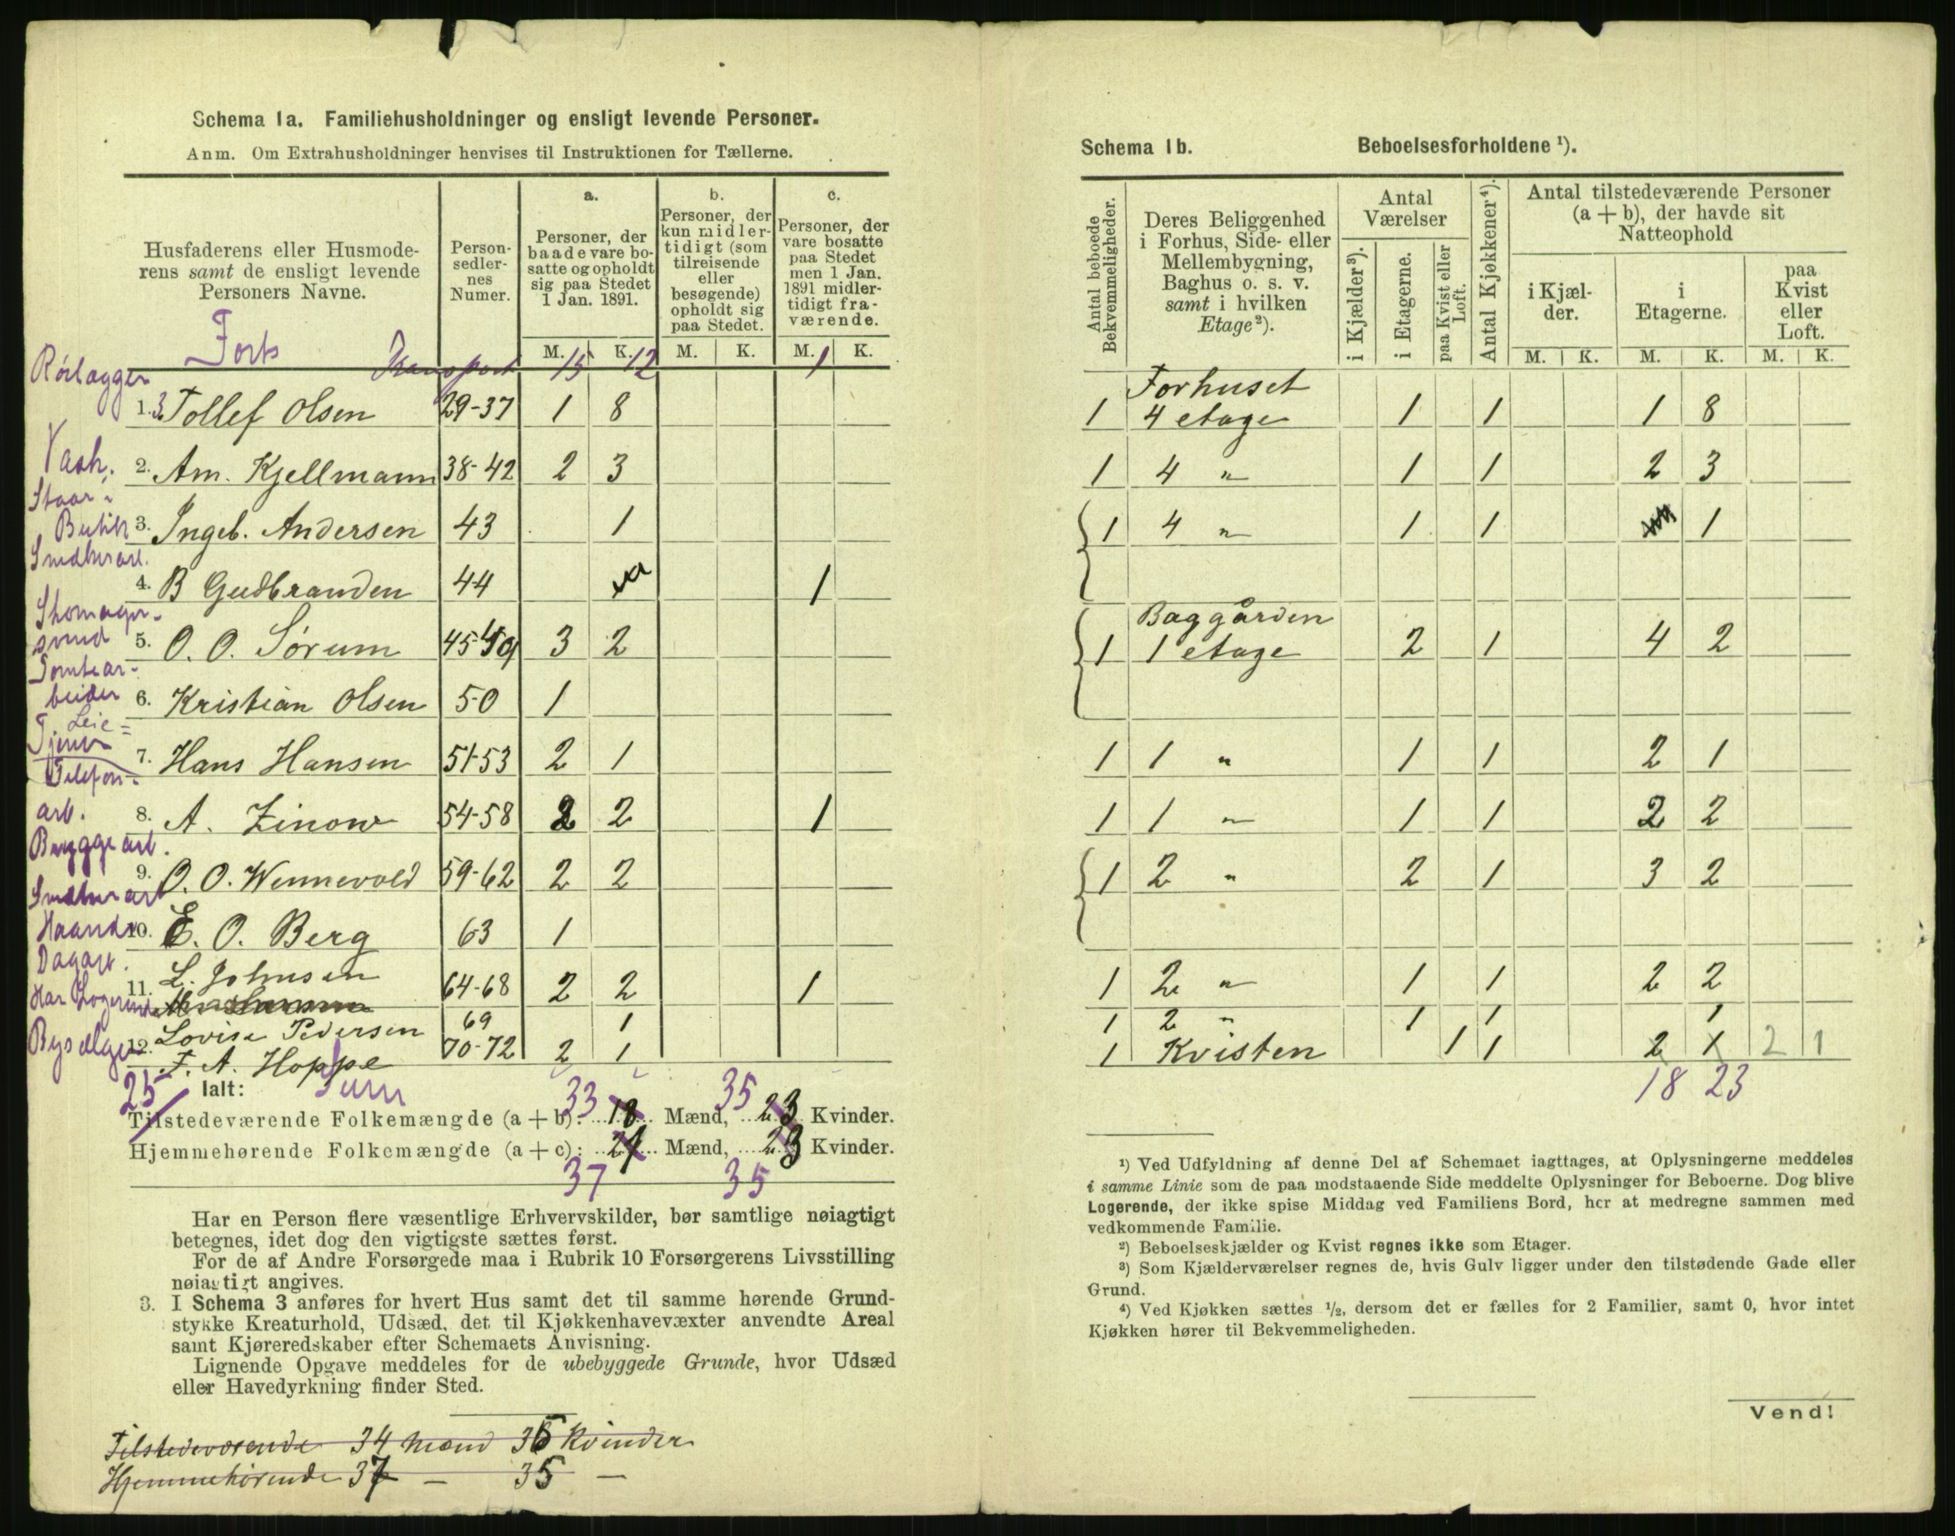 Schema 1a. Familiehusholdninger og ensligt levende Personer.
Anm. Om Extrahusholdninger henvises til Instruktionen for Tællerne.
Husfaderens eller Husmoderens samt de ensligt levende Personers Navne.
Person-sedler-nes Numer.
a.
Personer, der baade vare bosatte og opholdt sig paa Stedet 1 Jan. 1891.
b.
Personer, der kun midlertidigt (som tilreisende eller besøgende) opholdt sig paa Stedet.
c.
Personer, der vare bosatte paa Stedet men 1 Jan. 1891 midlertidigt fraværende.
M. K. M. K. M. K.
Forts Transport 15 12 1
Rørlægger
1. 3. Tollef Olsen 29-37 1 8
Vask.
2. Am. Kjellmann 38-42 2 3
Staar i Butik
3. Ingeb. Andersen 43 1
Snedkerarb.
4. B Gudbranden 44 1
Skomagersvend
5. O. O. Sørum 45-49 3 2
Tomtearbeider
6. Kristian Olsen 50 1
Leie=
Tjener
7. Hans Hansen 51-53 2 1
Telefonarb.
8. A. Zinow 54-58 2 2 1
Bryggearb.
9. O. O. Wennevold 59-62 2 2
Snedkerarb
10. E. O. Berg 63 1
Haandv.
Dagarb.
11. L. Johnsen 64-68 2 2 1
Har Logerende
Lovise Pedersen 69 1
Bysælger
12. F. A. Hoppe 70-72 2 1
25
Ialt: Sum
Tilstedeværende Folkemængde (a + b): 33 18 Mænd, 35 23 Kvinder.
Hjemmehørende Folkemængde (a + c): 21 Mænd, 23 Kvinder.
37 35
Har en Person flere væsentlige Erhvervskilder, bør samtlige nøiagtigt
betegnes, idet dog den vigtigste sættes først.
For de af Andre Forsørgede maa i Rubrik 10 Forsørgerens Livsstilling
nøiagtigt angives.
3. I Schema 3 anføres for hvert Hus samt det til samme hørende Grund-
stykke Kreaturhold, Udsæd, det til Kjøkkenhavevæxter anvendte Areal
samt Kjøreredskaber efter Schemaets Anvisning.
Lignende Opgave meddeles for de ubebyggede Grunde, hvor Udsæd
eller Havedyrkning finder Sted.
Tilstedeværende 34 Mænd 35 Kvinder
Hjemmehørende 37 — 35 —
Schema 1b. Beboelsesforholdene ¹).
Antal beboede Bekvemmeligheder.
Deres Beliggenhed i Forhus, Side- eller Mellembygning, Baghus o. s. v. samt i hvilken Etage²).
Antal Værelser
i Kjælder³).
i Etagerne.
paa Kvist eller Loft.
Antal Kjøkkener⁴).
Antal tilstedeværende Personer (a + b), der havde sit Natteophold
i Kjælder.
i Etagerne.
paa Kvist eller Loft.
M. K. M. K. M. K.
Forhuset
1 4 etage 1 1 1 8
1 4 " 1 1 2 3
1 4 " 1 1 1
Baggården
1 1 etage 2 1 4 2
1 1 " 1 1 2 1
1 1 " 1 1 2 2
1 2 " 2 1 3 2
1 2 " 1 1 2 2
1 2 " 1 1 1
1 Kvisten 1 1 2 1 2 1
18 23
¹) Ved Udfyldning af denne Del af Schemaet iagttages, at Oplysningerne meddeles
i samme Linie som de paa modstaaende Side meddelte Oplysninger for Beboerne. Dog blive
Logerende, der ikke spise Middag ved Familiens Bord, her at medregne sammen med
vedkommende Familie.
²) Beboelseskjælder og Kvist regnes ikke som Etager.
³) Som Kjælderværelser regnes de, hvis Gulv ligger under den tilstødende Gade eller
Grund.
⁴) Ved Kjøkken sættes ½, dersom det er fælles for 2 Familier, samt 0, hvor intet
Kjøkken hører til Bekvemmeligheden.
Vend!